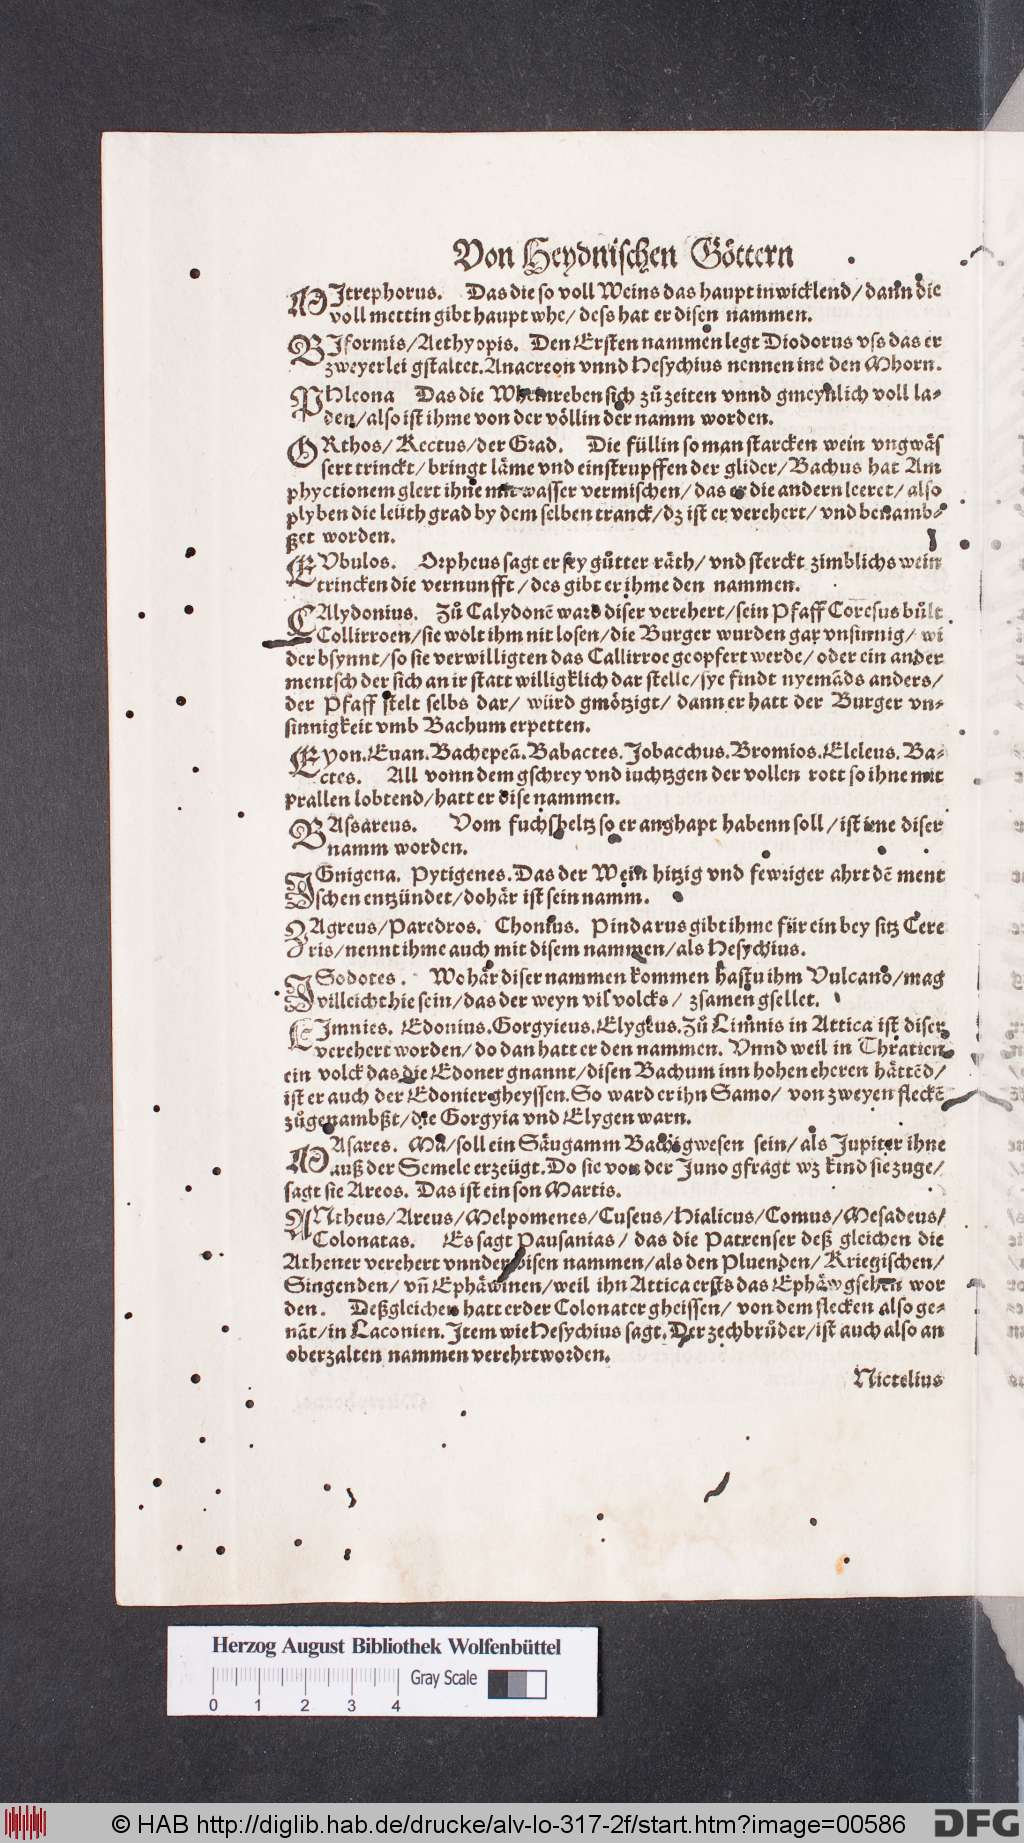 Von Heydnischen Göttern
MItrephorus. Das die so voll Weins das haupt inwicklend/ dann die
voll mettin gibt haupt whe/ dess hat er disen nammen.
BIformis/Aethyopis. Den Ersten nammen legt Diodorus vss das er
zweyerlei gstaltet. Anacreon vnnd Hesychius nennen ine den Mhorn.
PHleona Das die Wheinreben sich zů zeiten vnnd gmeynlich voll la-
den/also ist ihme von der völlin der namm worden.
ORthos/Rectus/der Grad. Die füllin so man starcken wein vngwäs
sert trinckt/bringt läme vnd einstrupffen der glider/Bachus hat Am
phyctionem glert ihne mit wasser vermischen/das er die andern leeret/also
plyben die leüth grad by dem selben tranck/dz ist er verehert/vnd benamb-
ßet worden.
EVbulos. Orpheus sagt er sey gůtter räth/ vnd sterckt zimblichs wein
trincken die vernunfft/des gibt er ihme den nammen.
CAlydonius. Zů Calydonē ward diser verehert/sein Pfaff Coresus bůlt
Collirroen/sie wolt ihm nit losen/die Burger wurden gar vnsinnig/ wi
der bsynnt/so sie verwilligten das Callirroe geopfert werde/oder ein ander
mentsch der sich an ir statt willigklich dar stelle/sye findt nyemāds anders/
der Pfaff stelt selbs dar/ würd gmötzigt/ dann er hatt der Burger vn-
sinnigkeit vmb Bachum erpetten.
EYon. Euan. Bachepeā. Babactes. Jobacchus. Bromios. Eleleus. Ba-
ctes. All vonn dem gschrey vnd iuchtzgen der vollen rott so ihne mit
prallen lobtend/hatt er dise nammen.
BAssareus. Vom fuchsbeltz so er anghapt habenn soll/ist ime diser
namm worden.
IGnigena. Pytigenes. Das der Wein hitzig vnd fewriger ahrt dē ment
schen entzündet/dohär ist sein namm.
ZAgreus/Paredros. Chonius. Pindarus gibt ihme für ein bey sitz Cere
ris/nennt ihme auch mit disem nammen/als Hesychius.
ISodotes. Wohär diser nammen kommen hastu ihm Vulcano/mag
villeicht hie sein/das der weyn vil volcks/ zsamen gsellet.
LImnies. Edonius. Gorgyieus. Elygeus. Zů Limnis in Attica ist diser
verehert worden/do dan hatt er den nammen. Vnnd weil in Thratien
ein volck das die Edoner gnannt/disen Bachum inn hohen eheren hättēd/
ist er auch der Edonier gheyssen. So ward er ihn Samo/ von zweyen fleckē
zůgenambßt/die Gorgyia vnd Elygen warn.
MAsares. Ma/soll ein Säugamm Bachi gwesen sein/als Jupiter ihne
auß der Semele erzeügt. Do sie von der Juno gfragt wz kind sie zuge/
sagt sie Areos. Das ist ein son Martis.
ANtheus/Areus/Melpomenes/Cuseus/Hialicus/Comus/Mesadeus/
Colonatas. Es sagt Pausanias/ das die Patrenser deß gleichen die
Athener verehert vnnder disen nammen/als den Pluenden/Kriegischen/
Singenden/ vñ Ephäwinen/weil ihn Attica ersts das Ephäw gsehen wor
den. Deßgleichen hatt er der Colonater gheissen/ von dem flecken also ge-
nāt/in Laconien. Item wie Hesychius sagt. Der zechbrüder/ist auch also an
oberzalten nammen verehrt worden.
Nictelius
Herzog August Bibliothek Wolfenbüttel
Gray Scale
0 1 2 3 4
© HAB http://diglib.hab.de/drucke/alv-lo-317-2f/start.htm?image=00586
DFG